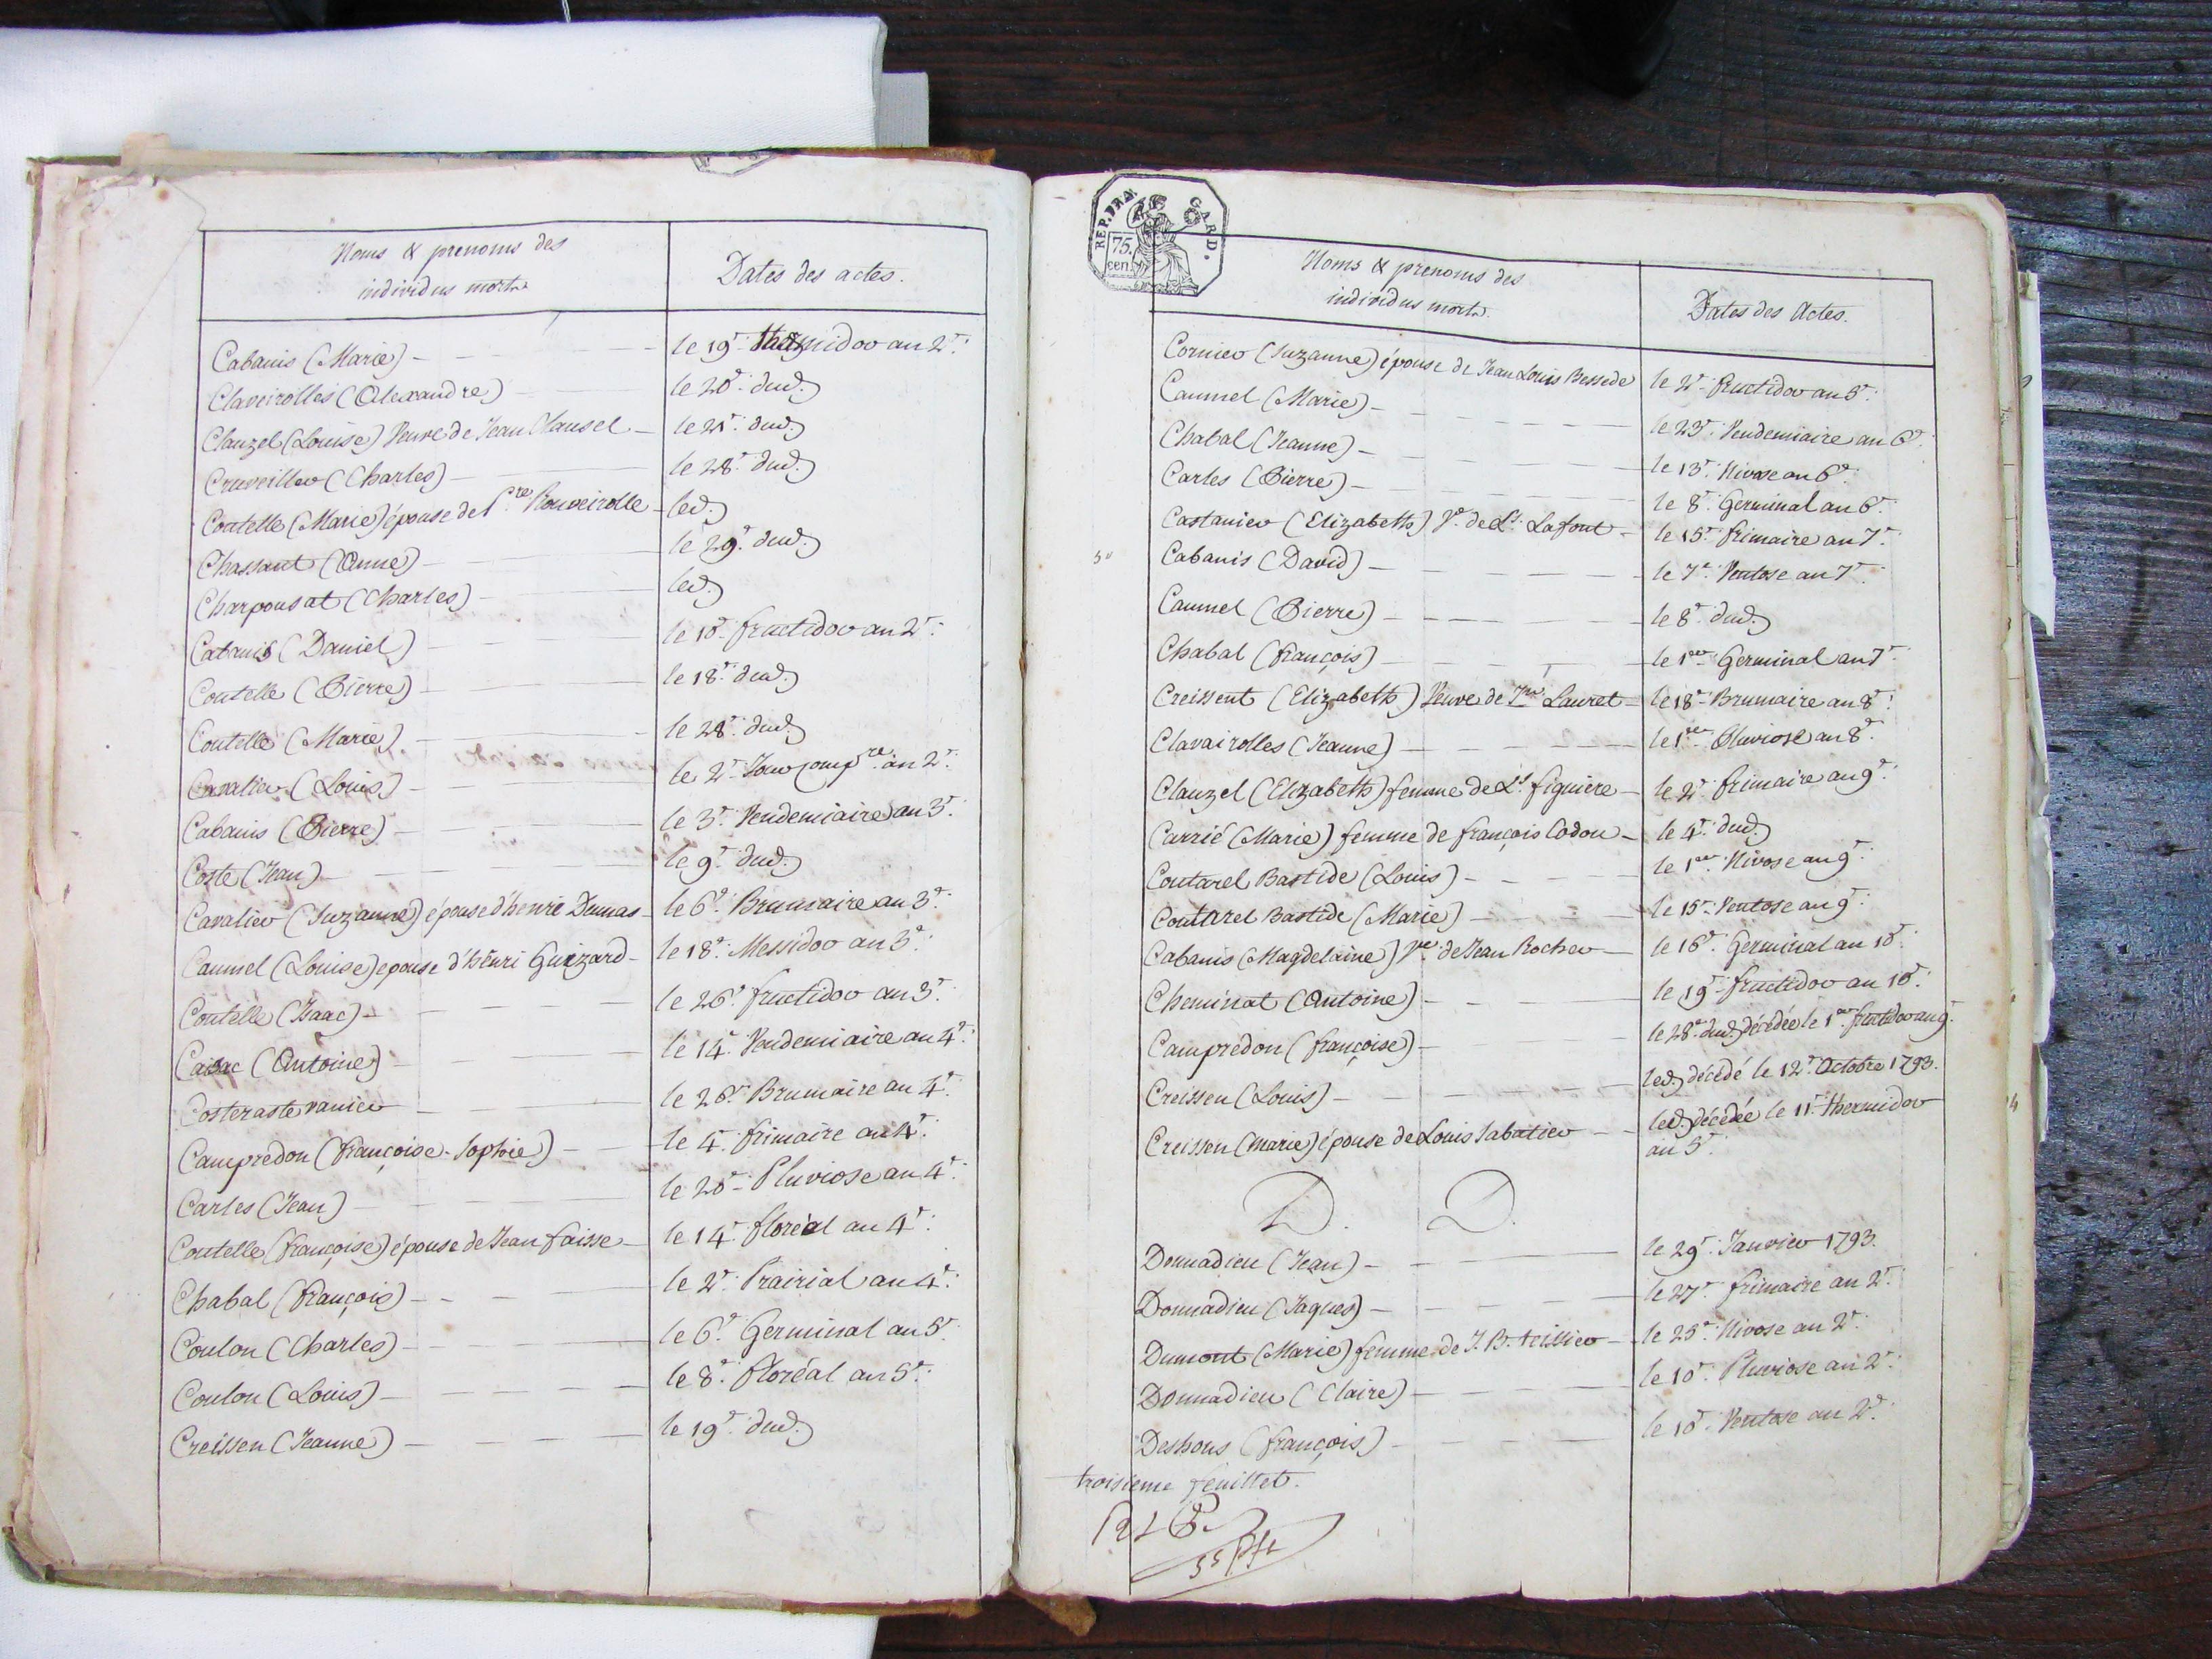 Noms & prenoms des
individus morts
Dates des actes.
Cabanis (Marie) le 19e. thermidor an 2e.
Claveirolles (Alexandre) le 20e. dud.
Clauzel (Louise) Veuve de Jean Clausel le 21e. dud.
Cruveiller (Charles) le 28e. dud.
Coutelle (Marie) épouse de Pre. Rouveirolle led.
Chassant (Anne) le 29e. dud.
Charpousat (Charles) led.
Cabanis (Daniel) le 10e. fructidor an 2e.
Coutelle (Pierre) le 18e. dud.
Coutelle (Marie) le 28e. dud.
Cavalier (Louis) le 2e. Jour compre. an 2e.
Cabanis (Pierre) le 3e. Vendemiaire an 3e.
Coste (Jean) le 9e. dud.
Cavalier (Suzanne) épouse d'henri Dumas le 6e. Brumaire an 3e.
Caumel (Louise) epouse d'henri Guizard le 18e. Messidor an 3e.
Coutelle (Isaac) le 26e. fructidor an 3e.
(Antoine) le 14e. Vendemiaire an 4e.
le 26e. Brumaire an 4e.
Campredon (françoise-Sophie) le 4e. frimaire an 4e.
Carles (Jean) le 20e. Pluviose an 4e.
Coutelle (françoise) épouse de Jean faisse le 14e. floréal an 4e.
Chabal (françois) le 2e. Prairial an 4e.
Coulon (Charles) le 6e. Germinal an 5e.
Coulon (Louis) le 8e. floréal an 5e.
Creissen (Jeanne) le 19e. dud.
REP. FRA. GARD.
75.
cen.
Noms & prenoms des
individus morts.
Dates des Actes.
Cornier (Suzanne) épouse de Jean Louis Bessede le 2e. fructidor an 5e.
Caumel (Marie) le 23e. Vendemiaire an 6e.
Chabal (Jeanne) le 13e. Nivose an 6e.
Carles (Pierre) le 8e. Germinal an 6e.
Castanier (Elizabeth) Ve. de Ls. Lafont le 15e. frimaire an 7e.
Cabanis (David) le 7e. Ventose an 7e.
Caumel (Pierre) le 8e. dud.
Chabal (françois) le 1er. Germinal an 7e.
Creissent (Elizabeth) Veuve de Jn. Lauret le 18e. Brumaire an 8e.
Clavairolles (Jeanne) le 1er. Pluviose an 8e.
Clauzel (Elizabeth) femme de Ls. figuiere le 2e. frimaire an 9e.
Carrié (Marie) femme de françois Codou le 4e. dud.
Coutarel Bastide (Louis) le 1er. Nivose an 9e.
Coutarel Bastide (Marie) le 15e. Ventose an 9e.
Cabanis (Magdelaine) Ve. de Jean Rocher le 16e. Germinal an 10e.
Cheminat (Antoine) le 19e. fructidor an 10e.
Campredon (françoise) le 28e. dud. décédée le 1er. fructidor an 9e.
Creissen (Louis) led. décédé le 12e. Octobre 1793.
Creissen (Marie) épouse de Louis Sabatier led. décédée le 11e. thermidor
an 5e.
D. D.
Donnadieu (Jean) le 29e. Janvier 1793.
Donnadieu (Jaques) le 27e. frimaire an 2e.
Dumont (Marie) femme de J. B. teissier le 25e. Nivose an 2e.
Donnadieu (Claire) le 10e. Pluviose an 2e.
Deshons (françois) le 10e. Ventose an 2e.
troisieme feuillet.